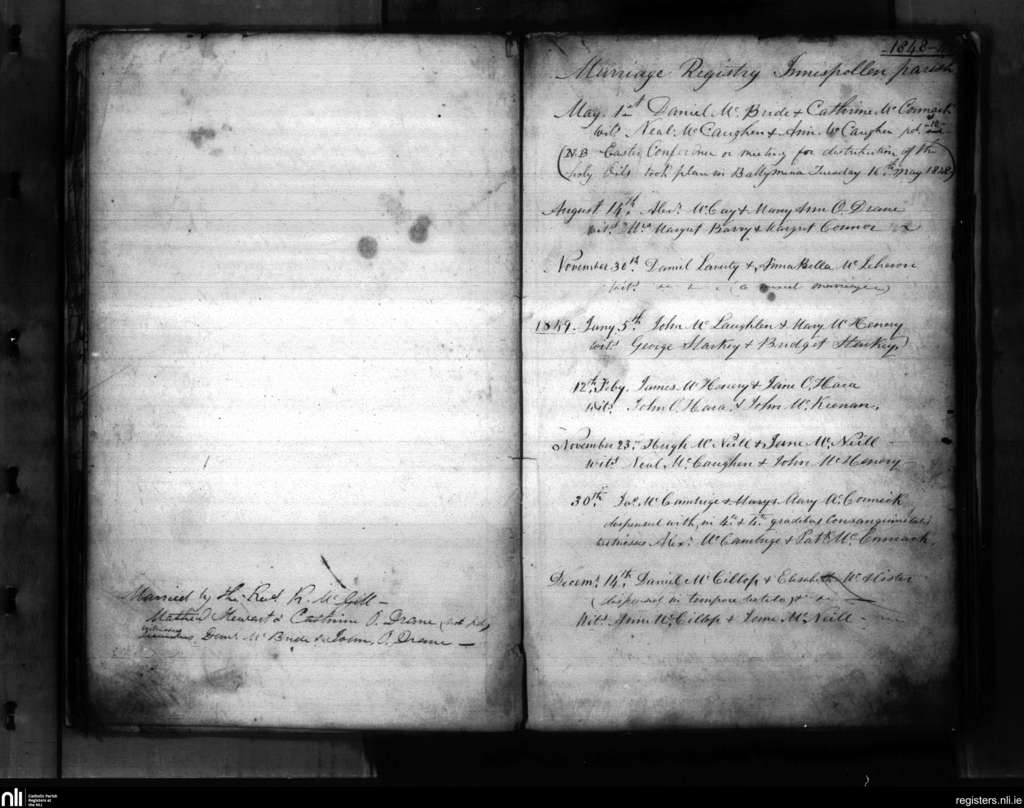 Married by the Revd R. McGill –
Mathew Stewart & Cathrine O. Drane
witnesses Danl. McBride & John O. Drane –
1848
Marriage Registry Innispollen parish
May 1st Daniel Mc.Bride & Cathrine McCormack
wits. Neal McCaughen & Ann McCaughen pd.
(NB Easter Conference or meeting for distribution of the
holy Oils took place in Ballymena Tuesday 16th May 1848)
August 14th. Alexr. McCay & Mary Ann O. Drane
wits. Margret Barry & Margret Connor
November 30th. Daniel Laverty & Anna Bella Mc
wits. marriage)
1849. Jany 5th. John McLaughlen & Mary McHenry
wits. George Starkey & Bridget Starkey
12th. Feby. James McHenery & Jane O.Hara
wits. John O.Hara & John McKeenan.
November 23rd Hugh McNeill & Jane McNeill –
wits. Neal McCaughen & John McHenery –
30th. Jas. McCambrige & Mary & Mary McCormick,
dispensed with, in 4to & 4to gradibus Consanguinitatis
witnesses Alexr. McCambrige & Patk. McCormack.
Decemr. 14th. Daniel McCillop & Elisabeth McAlister
(dispensed in tempore
Wits. Ann McCillop & Jane McNeill –
nli
Catholic Parish
Registers at
the NLI
registers.nli.ie